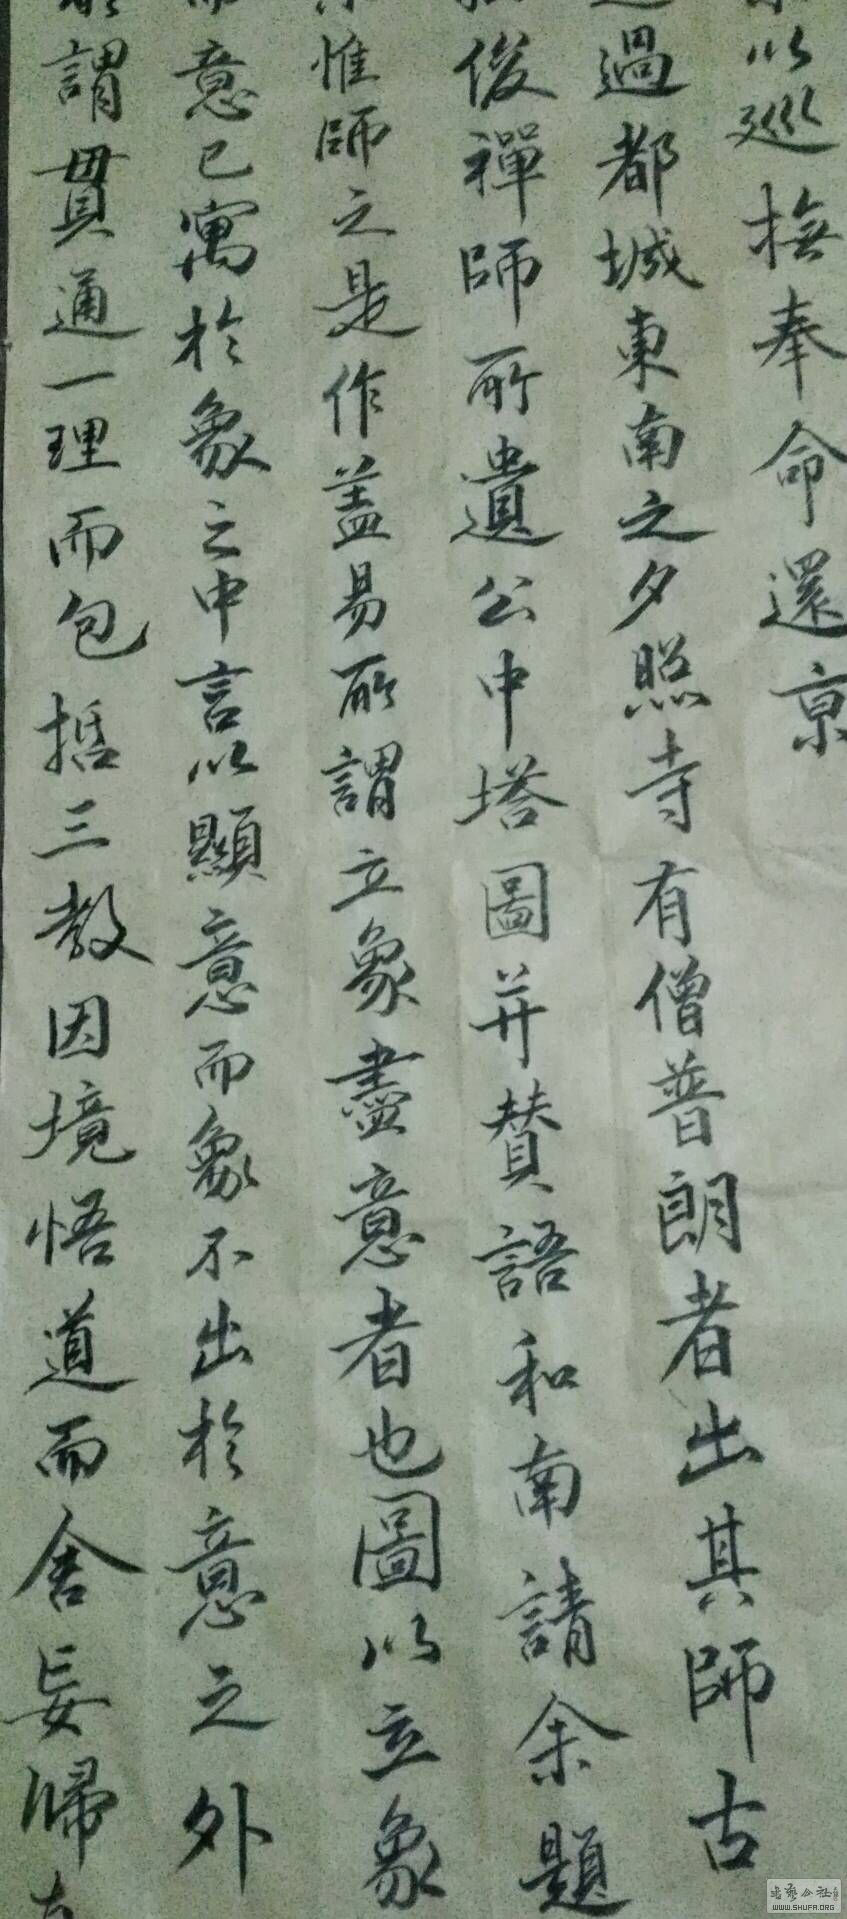 以巡撫奉命還京
過都城東南之夕照寺有僧普朗者出其師古
俊禪師所遺公中塔圖并贊語和南請余題
惟師之是作蓋易所謂立象盡意者也圖以立象
而意已寓於象之中言以顯意而象不出於意之外
謂貫通一理而包括三教因境悟道而舍妄歸
書法公社
WWW.SHUFA.ORG